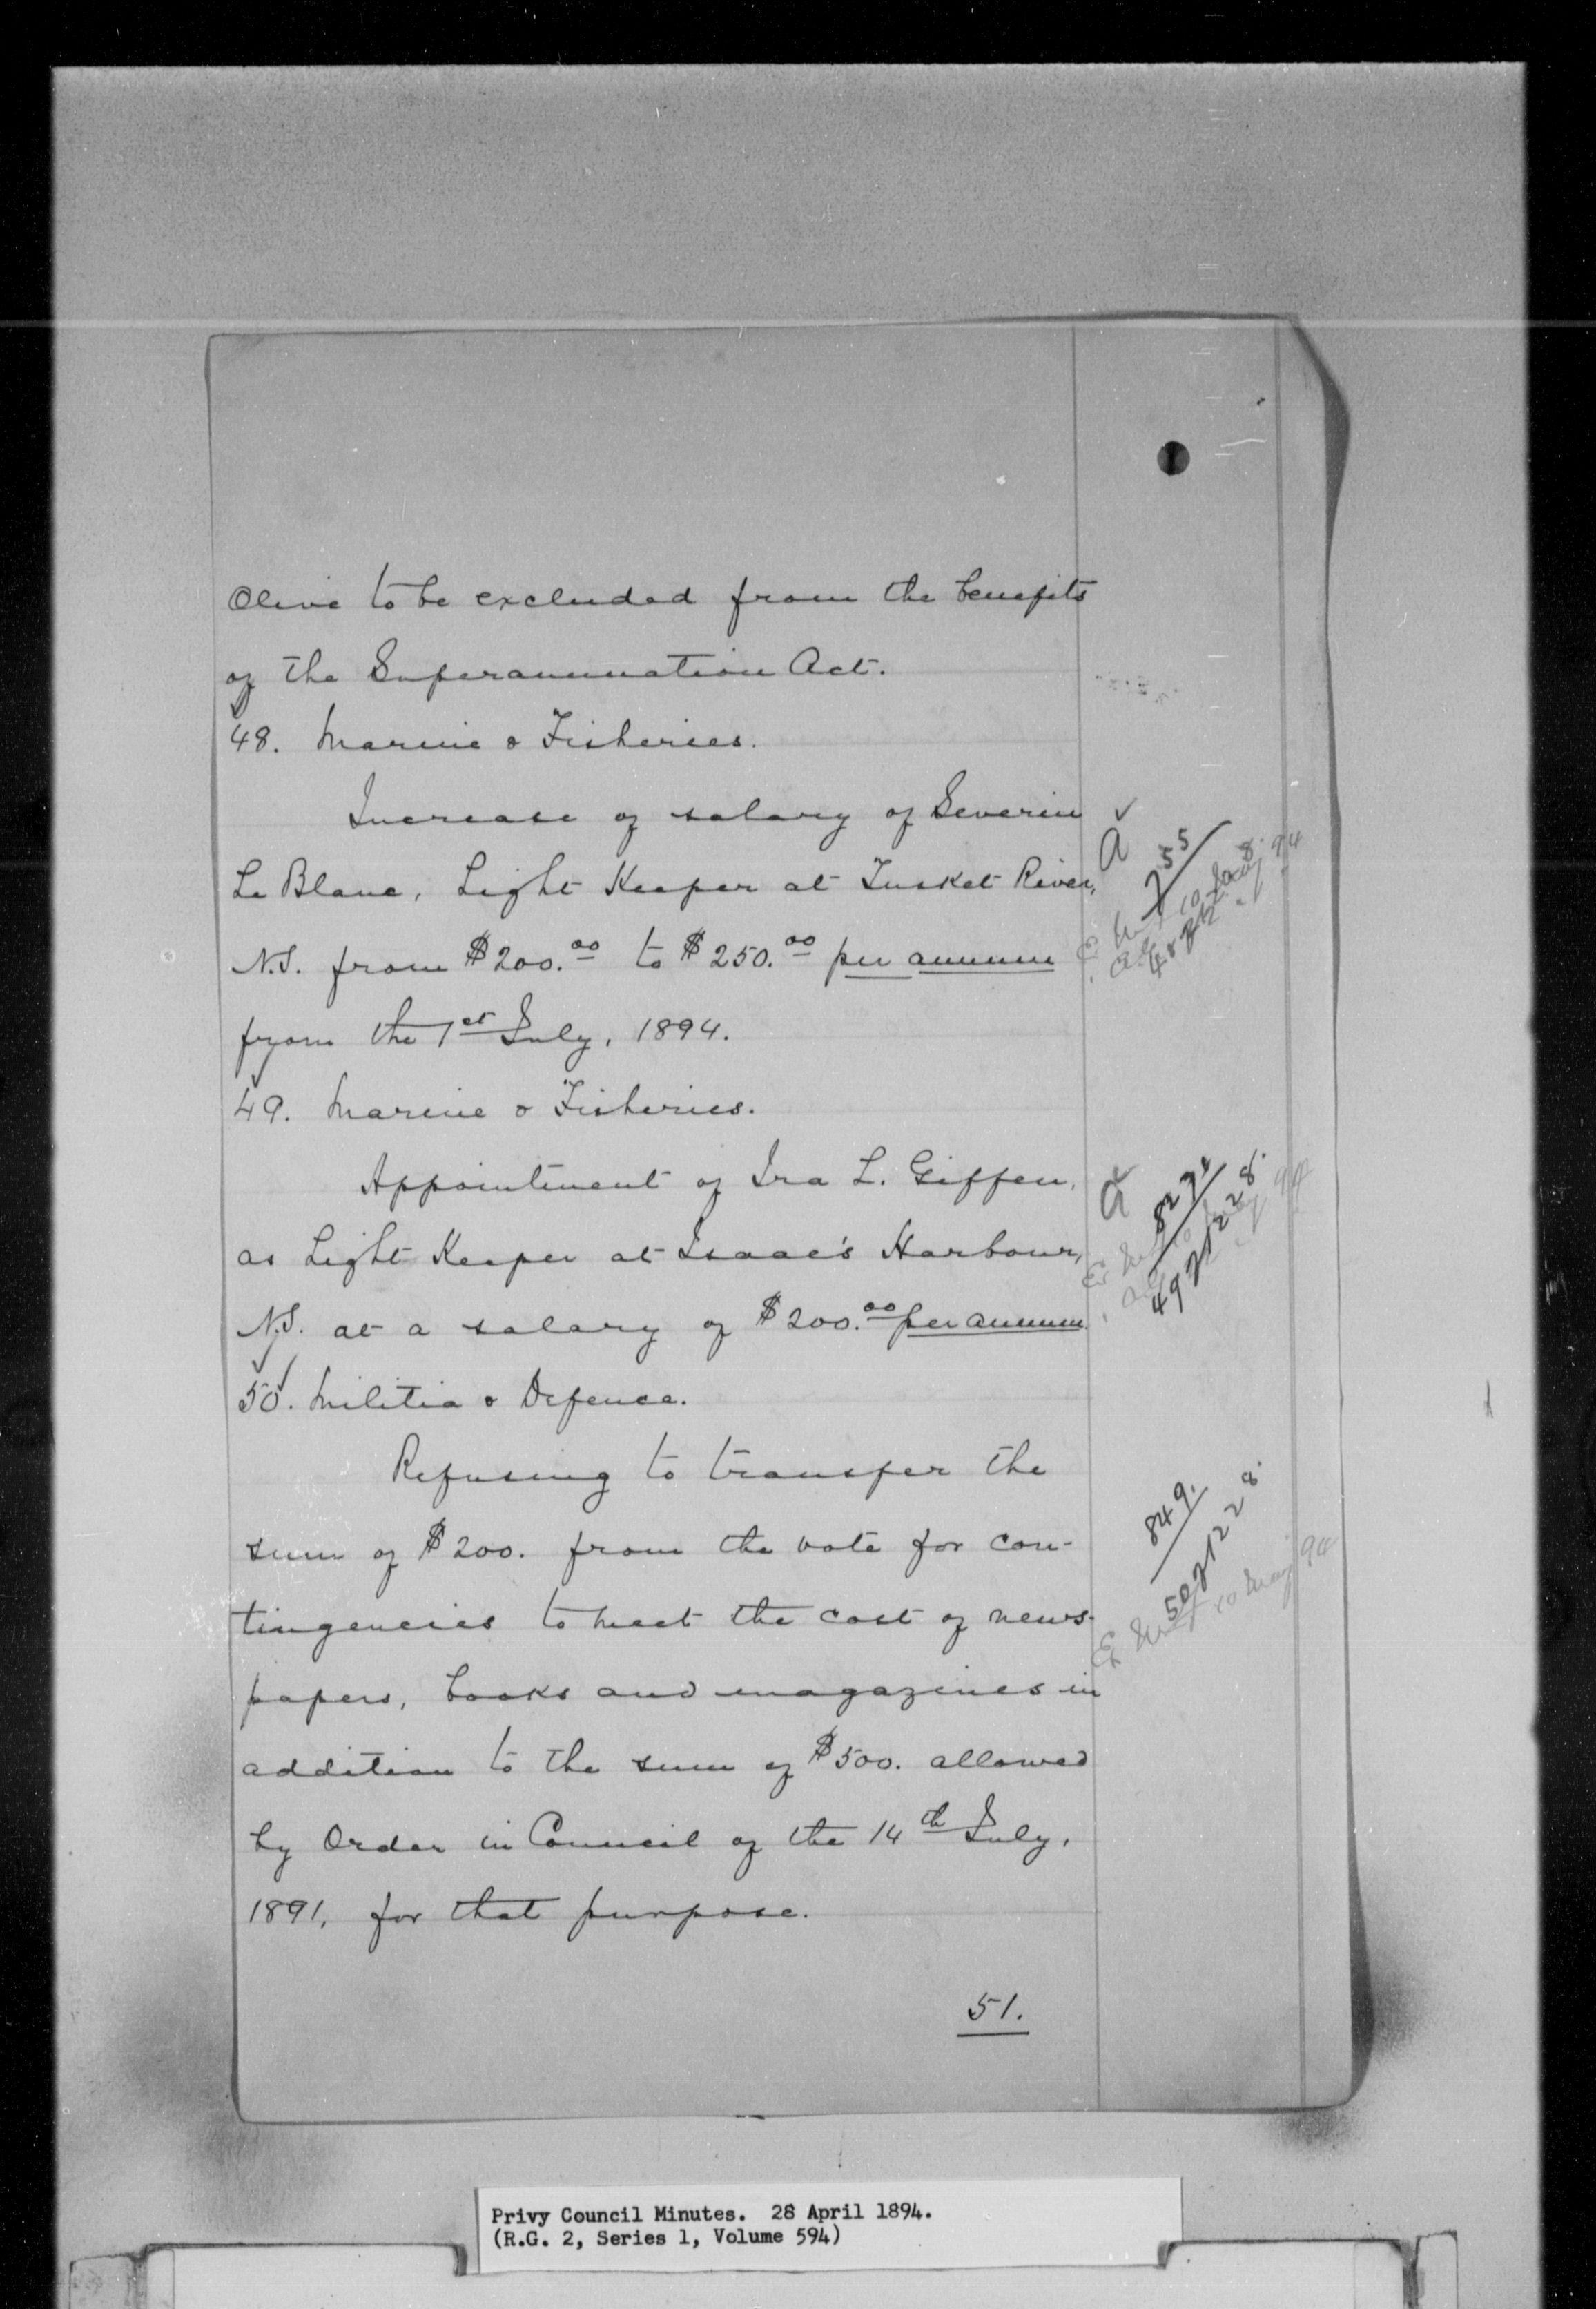 Olive to be excluded from the benefits
of the Superannuation Act.
48. Marine & Fisheries.
Increase of salary of Severin
Le Blanc, Light Keeper at Tusket River,
N.S. from $200.00 to $250.00 per annum
from the 1st July, 1894.
49. Marine & Fisheries.
Appointment of Ira L. Giffen,
as Light Keeper at Isaac's Harbour,
N.S. at a salary of $200.00 per annum.
50. Militia & Defence.
Refusing to transfer the
sum of $200. from the vote for con-
tingencies to meet the cost of news-
papers, books and magazines in
addition to the sum of $500. allowed
by Order in Council of the 14th July,
1891, for that purpose.
51.
a
755
a
827
849.
10 May 94
Privy Council Minutes. 28 April 1894.
(R.G. 2, Series 1, Volume 594)